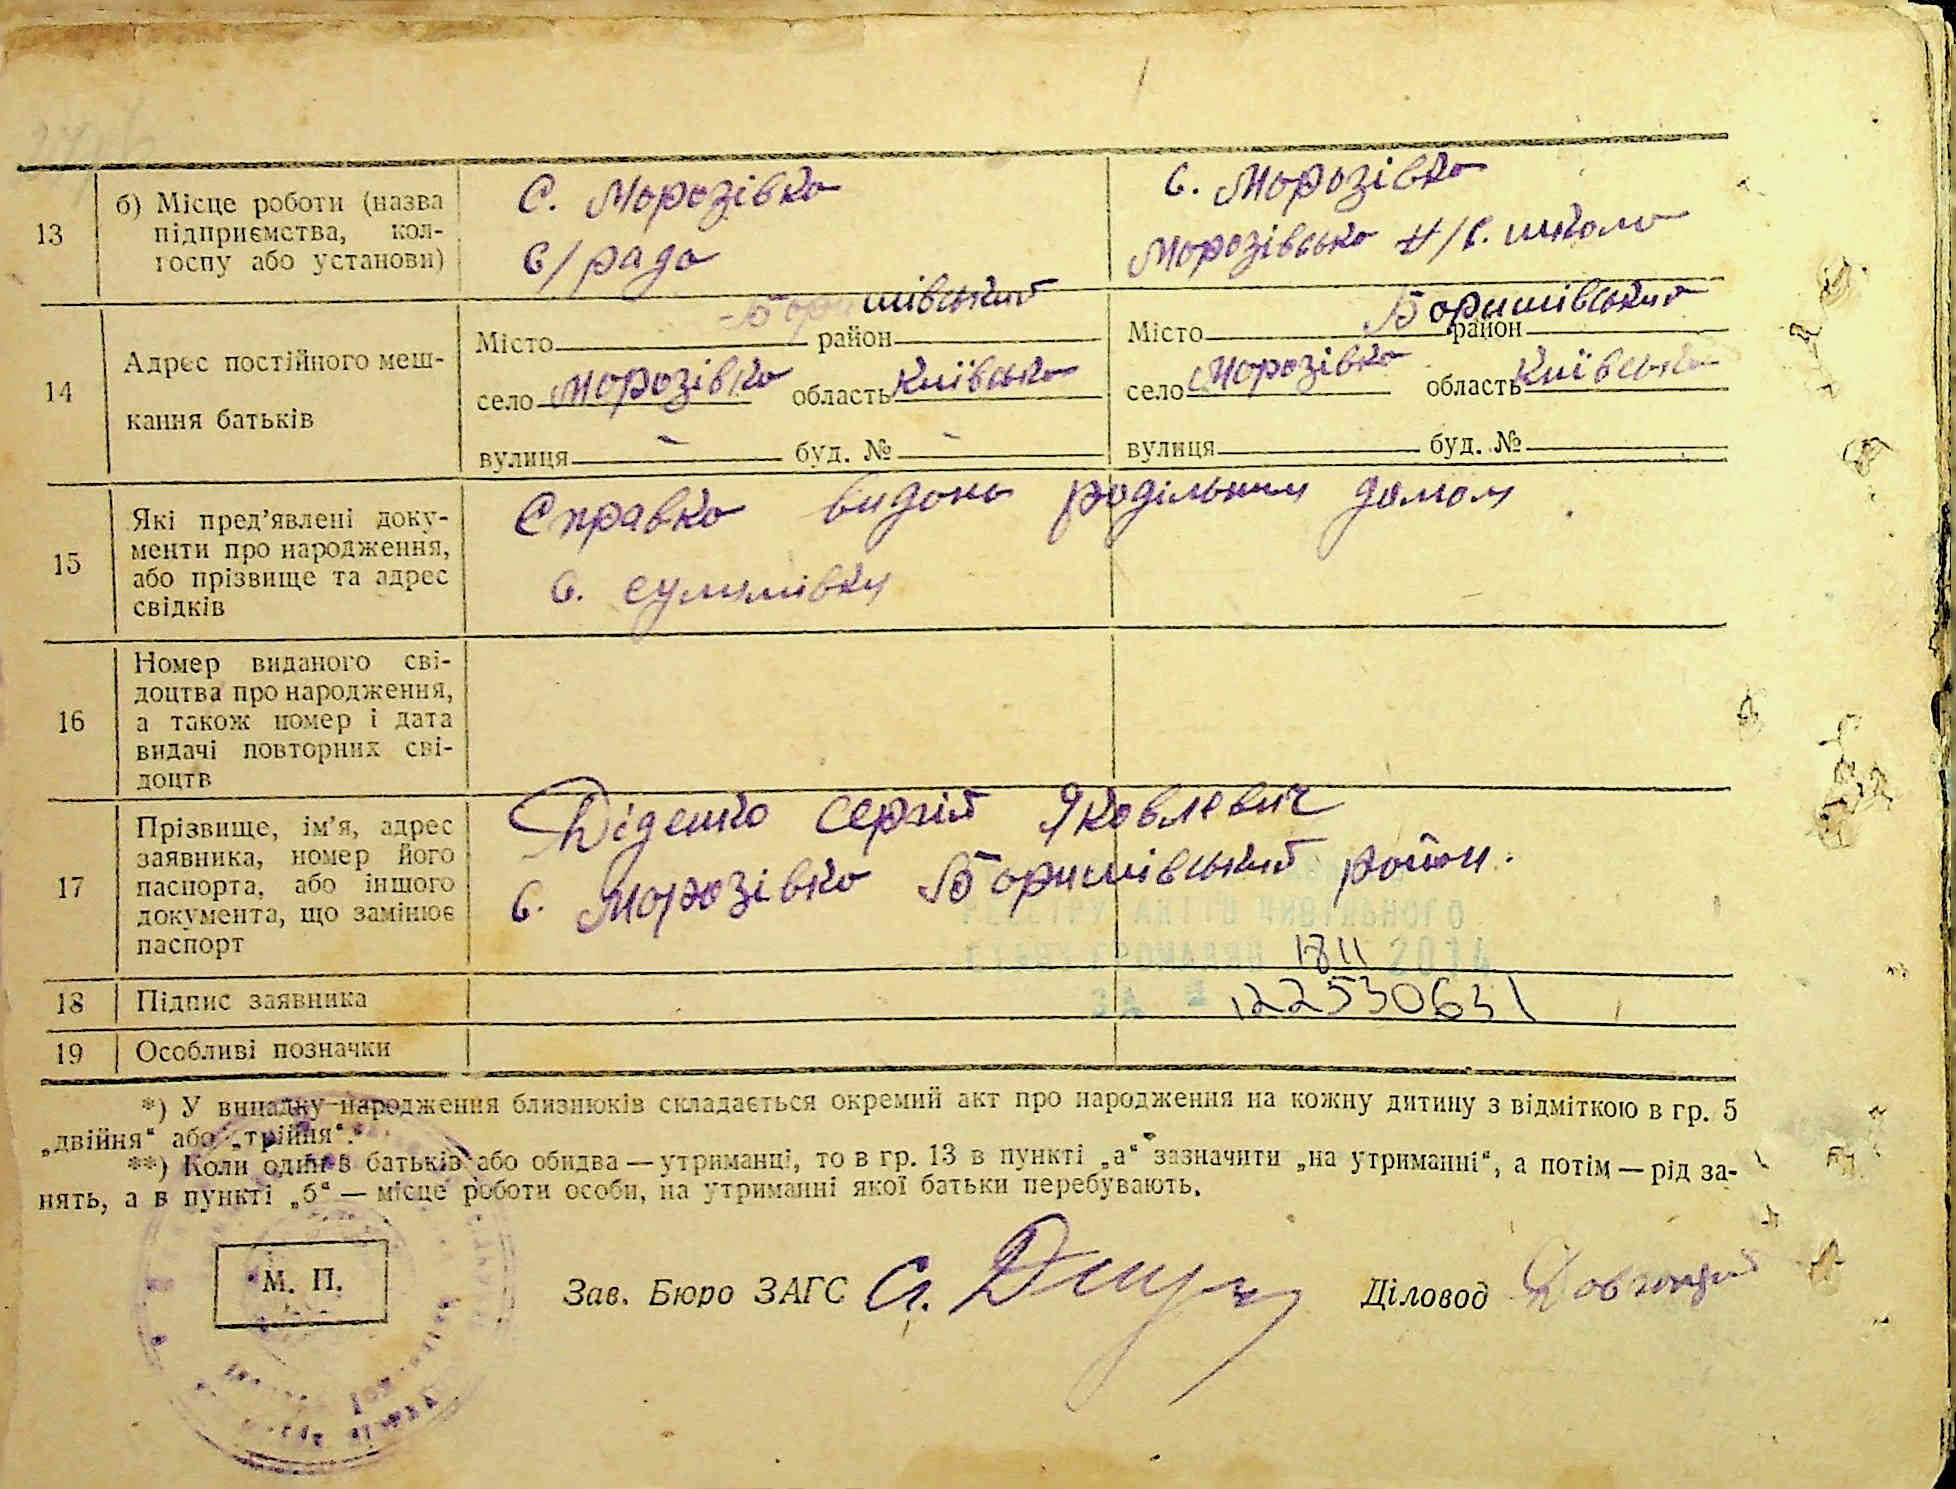 13
б) Місце роботи (назва
підприємства, кол-
госпу або установи)
С. Морозівка
С/рада
с. Морозівка
Морозівська Н/С. школа
14
Адрес постійного меш-
кання батьків
Місто район Боришівський
село Морозівка область Київська
вулиця - буд. № -
Місто район Боришівський
село Морозівка область Київська
вулиця буд. №
15
Які пред’явлені доку-
менти про народження,
або прізвище та адрес
свідків
Справка видана родільним домом
с.
16
Номер виданого сві-
доцтва про народження,
а також номер і дата
видачі повторних сві-
доцтв
17
Прізвище, ім’я, адрес
заявника, номер його
паспорта, або іншого
документа, що замінює
паспорт
Діденко Сергій Яковлевич
с. Морозівка Боришівський район.
РЕЄСТРУ АКТІВ ЦИВІЛЬНОГО
СТАНУ ГРОМАДЯН 18 11 2014
ЗА № 122530631
18
Підпис заявника
19
Особливі позначки
*) У випадку народження близнюків складається окремий акт про народження на кожну дитину з відміткою в гр. 5
„двійня“ або „трійня“.
**) Коли один з батьків або обидва — утриманці, то в гр. 13 в пункті „а“ зазначити „на утриманні“, а потім — рід за-
нять, а в пункті „б“ — місце роботи особи, на утриманні якої батьки перебувають.
М. П.
Зав. Бюро ЗАГС
Діловод